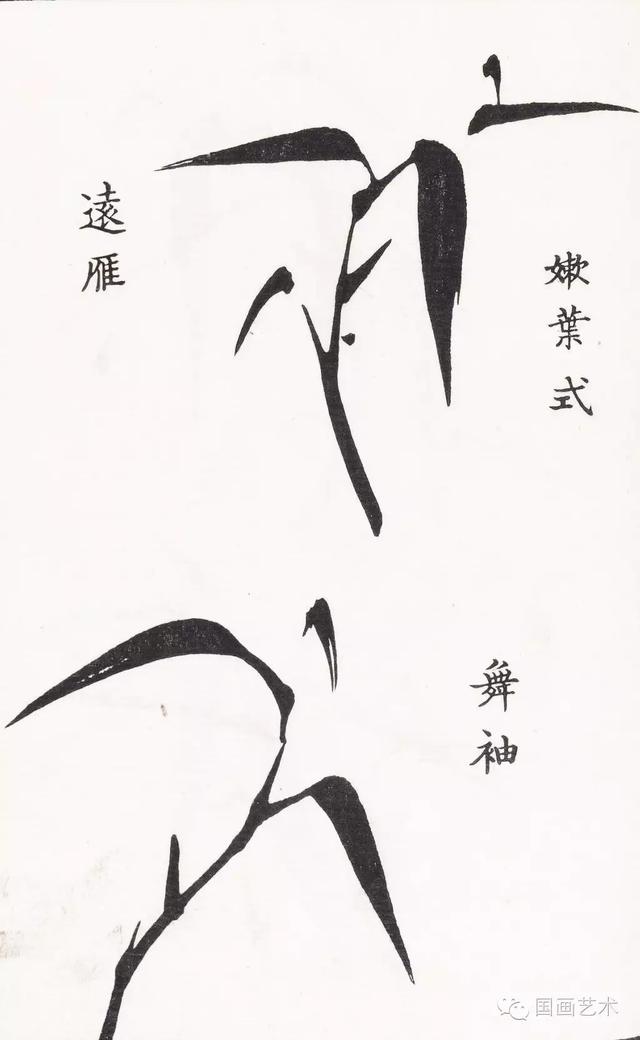 嫩葉式
遠雁
舞袖
国画艺术